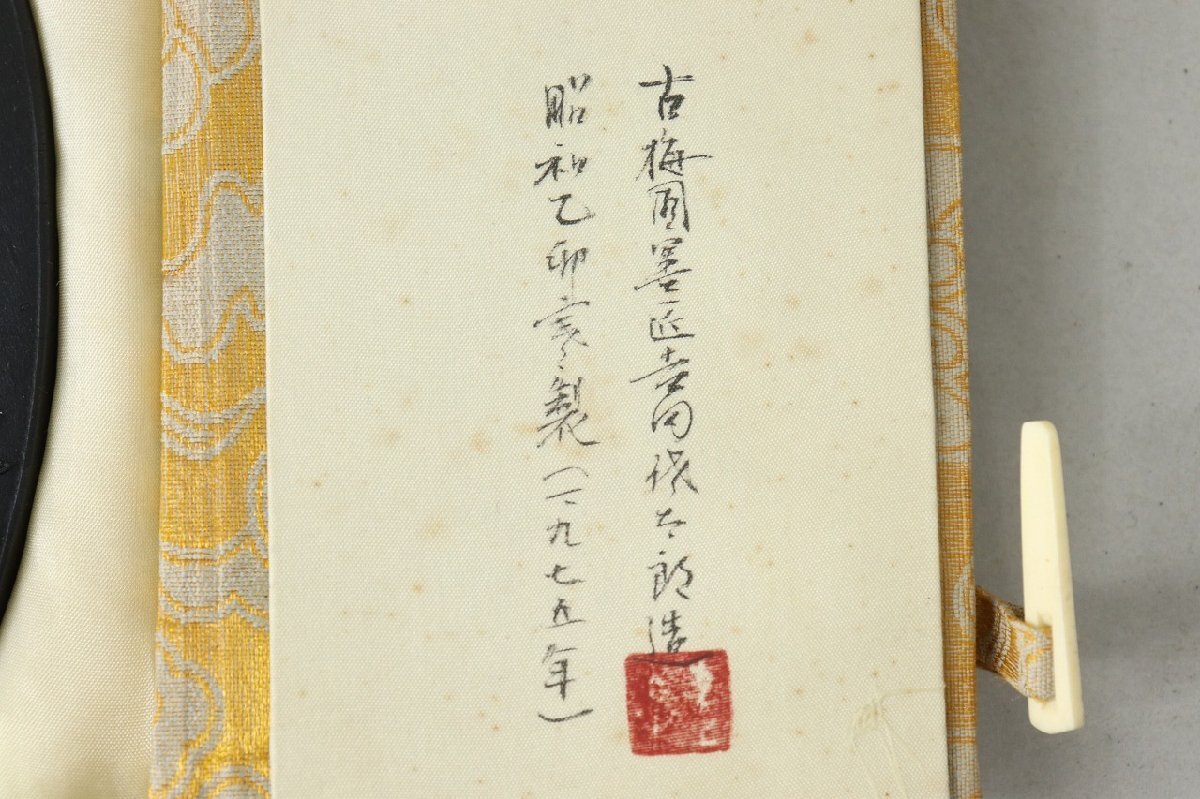 古梅園墨匠吉田太郎造
昭和乙卯寒製(一九七五年)